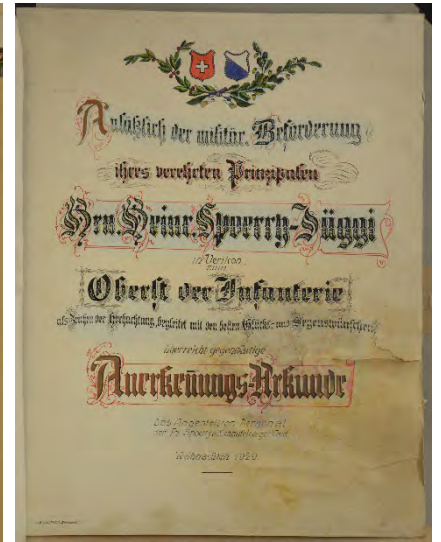 Anläßlich der militär. Beförderung
ihres verehrten Prinzipalen
Hrn. Heinr. Spoerry-Jäggi
in Uerikon
zum
Oberst der Infanterie
als Zeichen der Hochachtung, begleitet mit den besten Glücks- und Segenswünschen
überreicht gegenwärtige
Anerkeñungs-Urkunde
Das Angestellten Personal
der